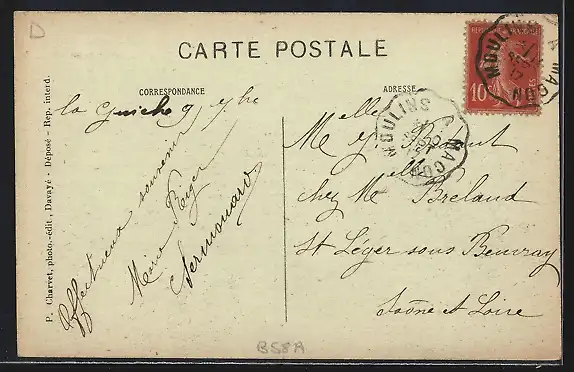 D
CARTE POSTALE
CORRESPONDANCE
ADRESSE
P. Charvet, photo.-édit., Davayé - Déposé - Rep. interd.
la Guiche 9 7bre
Affectueux souvenir
Marie
MOULINS A MACON
10
MOULINS A MACON
Melle Y.
chez Melle Breland
St Léger sous Beuvray
Saône et Loire
B58A